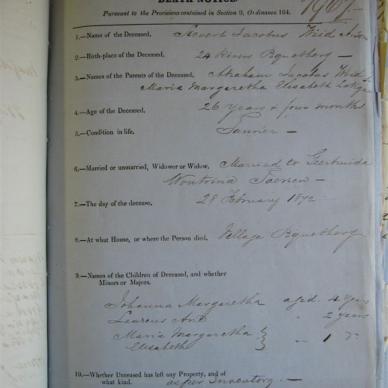 DEATH NOTICE
Pursuant to the Provisions contained in Section 9, Ordinance 104.
1.—Name of the Deceased, Jacobus
2.—Birth-place of the Deceased, 24 Rivers Piquetberg —
3.—Names of the Parents of the Deceased, Abraham Jacobus
Maria Margaretha Elisabeth
4.—Age of the Deceased, 26 years & four months
5.—Condition in life,
6.—Married or unmarried, Widower or Widow, Married to Geertruida
7.—The day of the decease, 28 February 1872 —
8.—At what House, or where the Person died, Village Piquetberg
9.—Names of the Children of Deceased, and whether
Minors or Majors.
Johanna Margaretha aged 4 years
" 2 years
Maria Margaretha
Elisabeth " 1
10.—Whether Deceased has left any Property, and of
what kind. as per Inventory. —